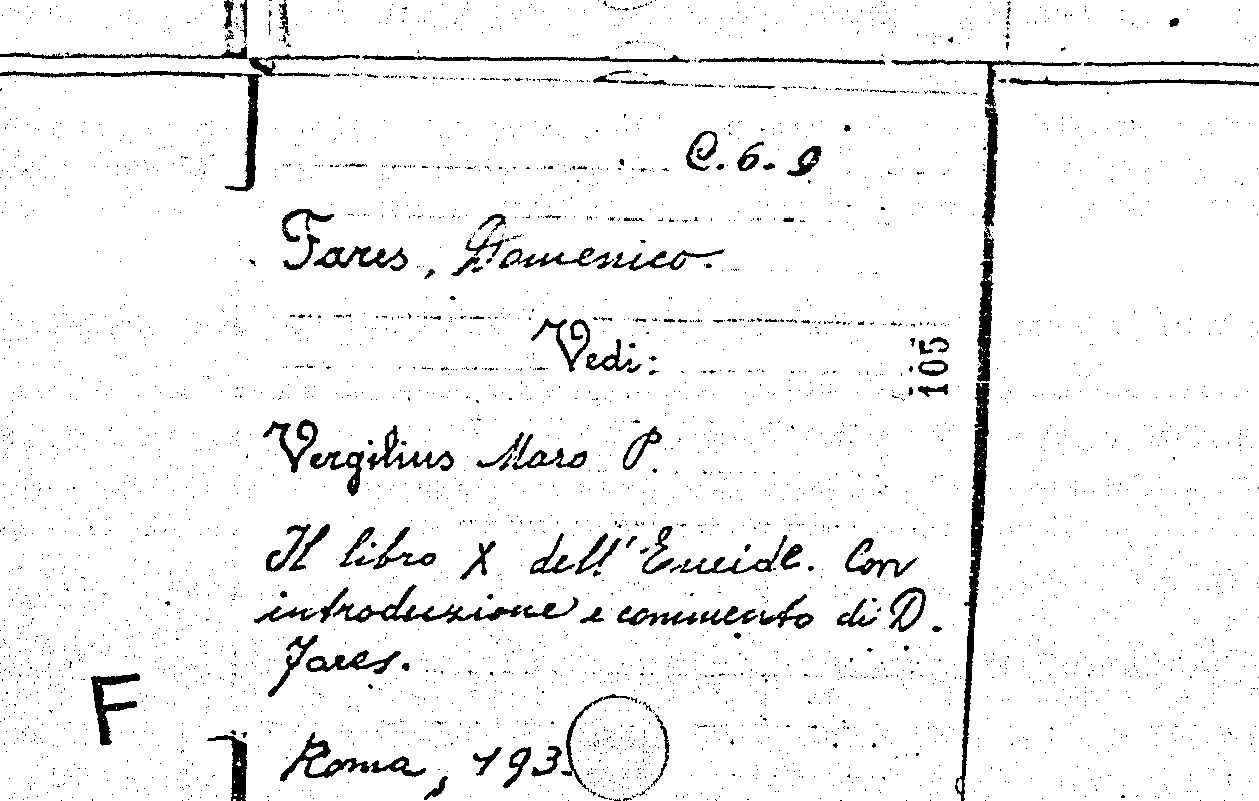 C. 6. 9
Fares, Domenico.
Vedi:
105
Vergilius Maro P.
Il libro X dell'Eneide. Con
introduzione e commento di D.
Fares.
F
Roma, 193